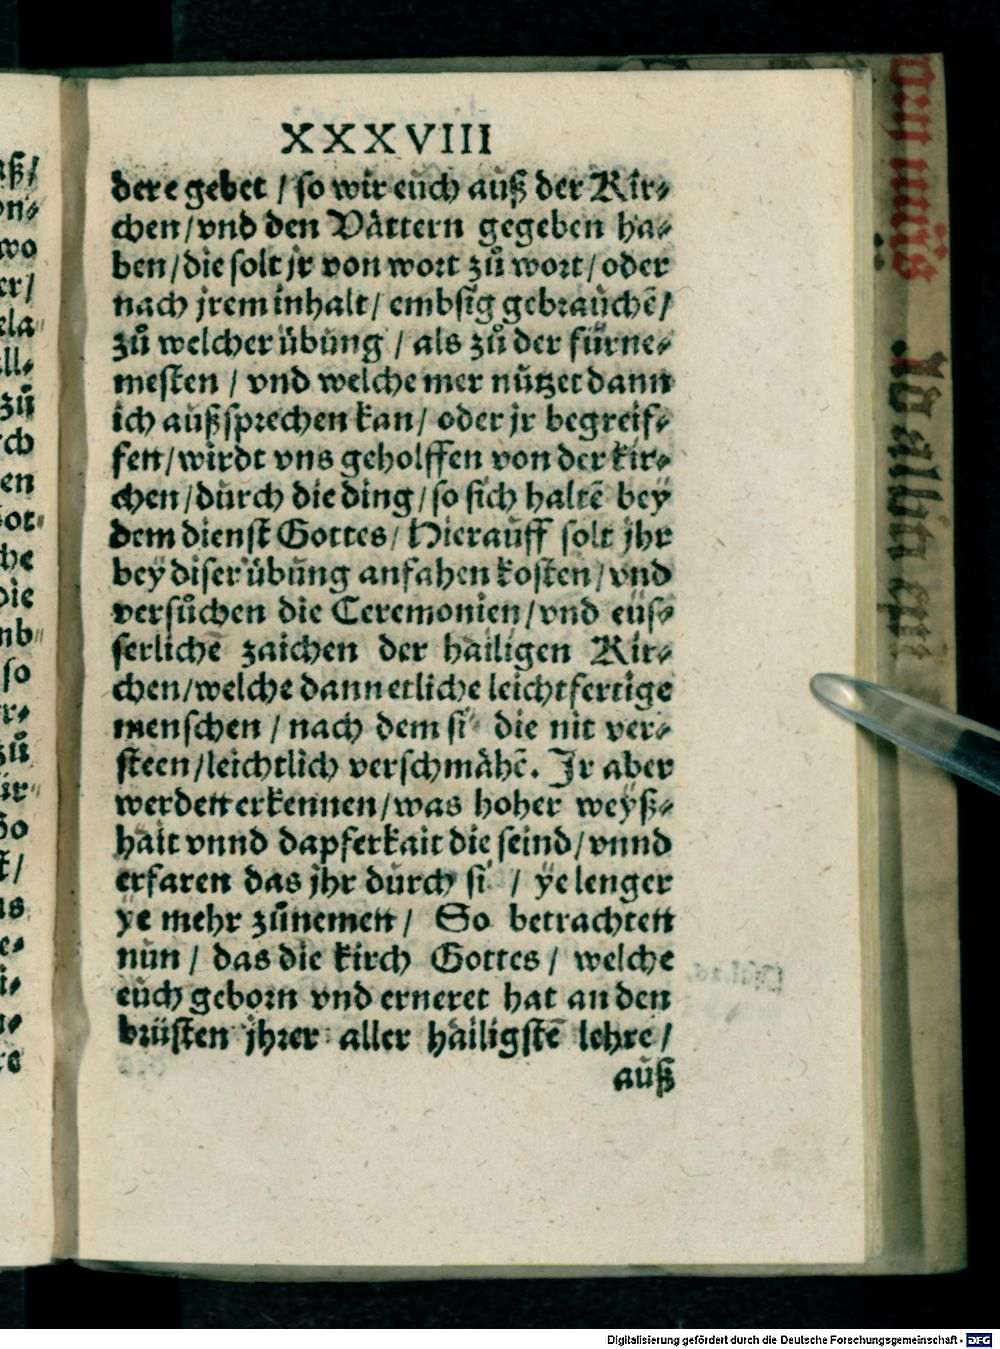 XXXVIII
dere gebet / so wir euch auß der Kir⸗
chen / vnd den Vättern gegeben ha⸗
ben / die solt jr von wort zů wort / oder
nach jrem inhalt / embsig gebrauchē /
zů welcher übung / als zů der fürne⸗
mesten / vnd welche mer nützet dann
ich außsprechen kan / oder jr begreif⸗
fen / wirdt vns geholffen von der kir⸗
chen / durch die ding / so sich haltē bey
dem dienst Gottes / Hierauff solt jhr
bey diser übung anfahen kosten / vnd
versůchen die Ceremonien / vnd eüs⸗
serlichē zaichen der hailigen Kir⸗
chen / welche dann etliche leichtfertige
menschen / nach dem si die nit ver⸗
steen / leichtlich verschmähē. Ir aber
werden erkennen / was hoher weyß⸗
hait vnnd dapferkait die seind / vnnd
erfaren das jhr durch si / ye lenger
ye mehr zůnemen / So betrachten
nun / das die kirch Gottes / welche
euch geborn vnd erneret hat an den
brüsten jhrer aller hailigstē lehre /
auß
aß /
wo
er /
ela
zů
en
he
die
so
zů
So
Digitalisierung gefördert durch die Deutsche Forschungsgemeinschaft - DFG